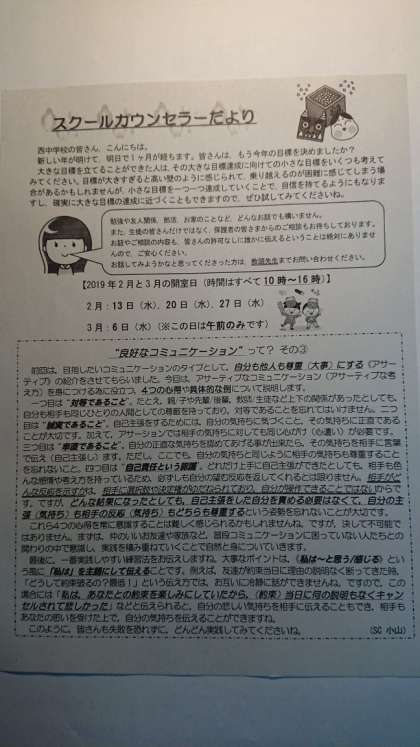 スクールカウンセラーだより
西中学校の皆さん、こんにちは。
新しい年が明けて、明日で1ヶ月が経ちます。皆さんは、もう今年の目標を決めましたか？
大きな目標を立てることができた人は、その大きな目標達成に向けての小さな目標をいくつも考えて
みてください。目標が大きすぎると高い壁のように感じられて、乗り越えるのが困難に感じてしまう場
合があるかもしれませんが、小さな目標を一つ一つ達成していくことで、自信を持てるようにもなりま
すし、確実に大きな目標の達成に近づくこともできますので、ぜひ試してみてくださいね。
勉強や友人関係、部活、お家のことなど、どんなお話でも構いません。
また、生徒の皆さんだけではなく、保護者の皆さまからのご相談もお待ちしております。
お話やご相談の内容も、皆さんの許可なしに誰かに伝えるということは絶対にありませ
んので、ご安心ください。
お話してみようかなと思ってくださった方は、教頭先生までお問い合わせください。
【2019年2月と3月の開室日（時間はすべて10時～16時）】
2月：13日（水）、20日（水）、27日（水）
3月：6日（水）（※この日は午前のみです）
“良好なコミュニケーション”って？ その③
前回は、目指したいコミュニケーションのタイプとして、自分も他人も尊重（大事）にする《アサー
ティブ》の紹介をさせてもらいました。今回は、アサーティブなコミュニケーション（アサーティブな考
え方）を身につける為に役立つ、4つの心得や具体的な例について説明します。
一つ目は“対等であること”。たとえ、親/子や先輩/後輩、教師/生徒など上下の関係があったとしても、
自分も相手も同じひとりの人間としての尊厳を持っており、対等であることを忘れてはいけません。二つ
目は“誠実であること”。自己主張をするためには、自分の気持ちに気づくこと、その気持ちに正直である
ことが大切です。加えて、アサーションでは相手の気持ちに対しても同じ心がけ（心遣い）が必要です。
三つ目は“率直であること”。自分の正直な気持ちを認めてあげる事が出来たら、その気持ちを相手に言葉
で伝え（自己主張し）ます。ただし、ここでも、自分の気持ちと同じように相手の気持ちも尊重すること
を忘れないこと。四つ目は“自己責任という認識”。どれだけ上手に自己主張ができたとしても、相手も色
んな感情や考え方を持っているため、必ずしも自分の望む反応を返してくれるとは限りません。相手がど
んな反応を示すかは、相手に選択肢や決定権がゆだねられており、自分が操作できることではないからで
す。ですが、どんな結果になったとしても、自己主張をした自分を責める必要はなくて、自分の主
張（気持ち）も相手の反応（気持ち）もどちらも尊重するという姿勢を忘れないことが大切です。
これら4つの心得を常に意識することは難しく感じられるかもしれませんね。ですが、決して不可能で
はありません。まずは、仲のいいお友達や家族など、普段コミュニケーションに困っていない人たちとの
関わりの中で意識し、実践を積み重ねていくことで自然と身についていきます。
最後に、一番実践しやすい練習法をお伝えしますね。大事なポイントは、《私は～と思う/感じる》とい
う風に『私は』を主語にして伝えることです。例えば、友達が約束当日に理由の説明なく断ってきた時、
「どうして約束破るの？最低！」という伝え方では、お互いに冷静に話ができませんね。ですので、この
場合には「私は、あなたとの約束を楽しみにしていたから、（約束）当日に何の説明もなくキャン
セルされて悲しかった」などと伝えられると、自分の悲しい気持ちを相手に伝えることもでき、相手も
あなたの思いを受けた上で、自分の気持ちを伝えることができますね。
このように、皆さんも失敗を恐れずに、どんどん実践してみてくださいね。
（SC 小山）